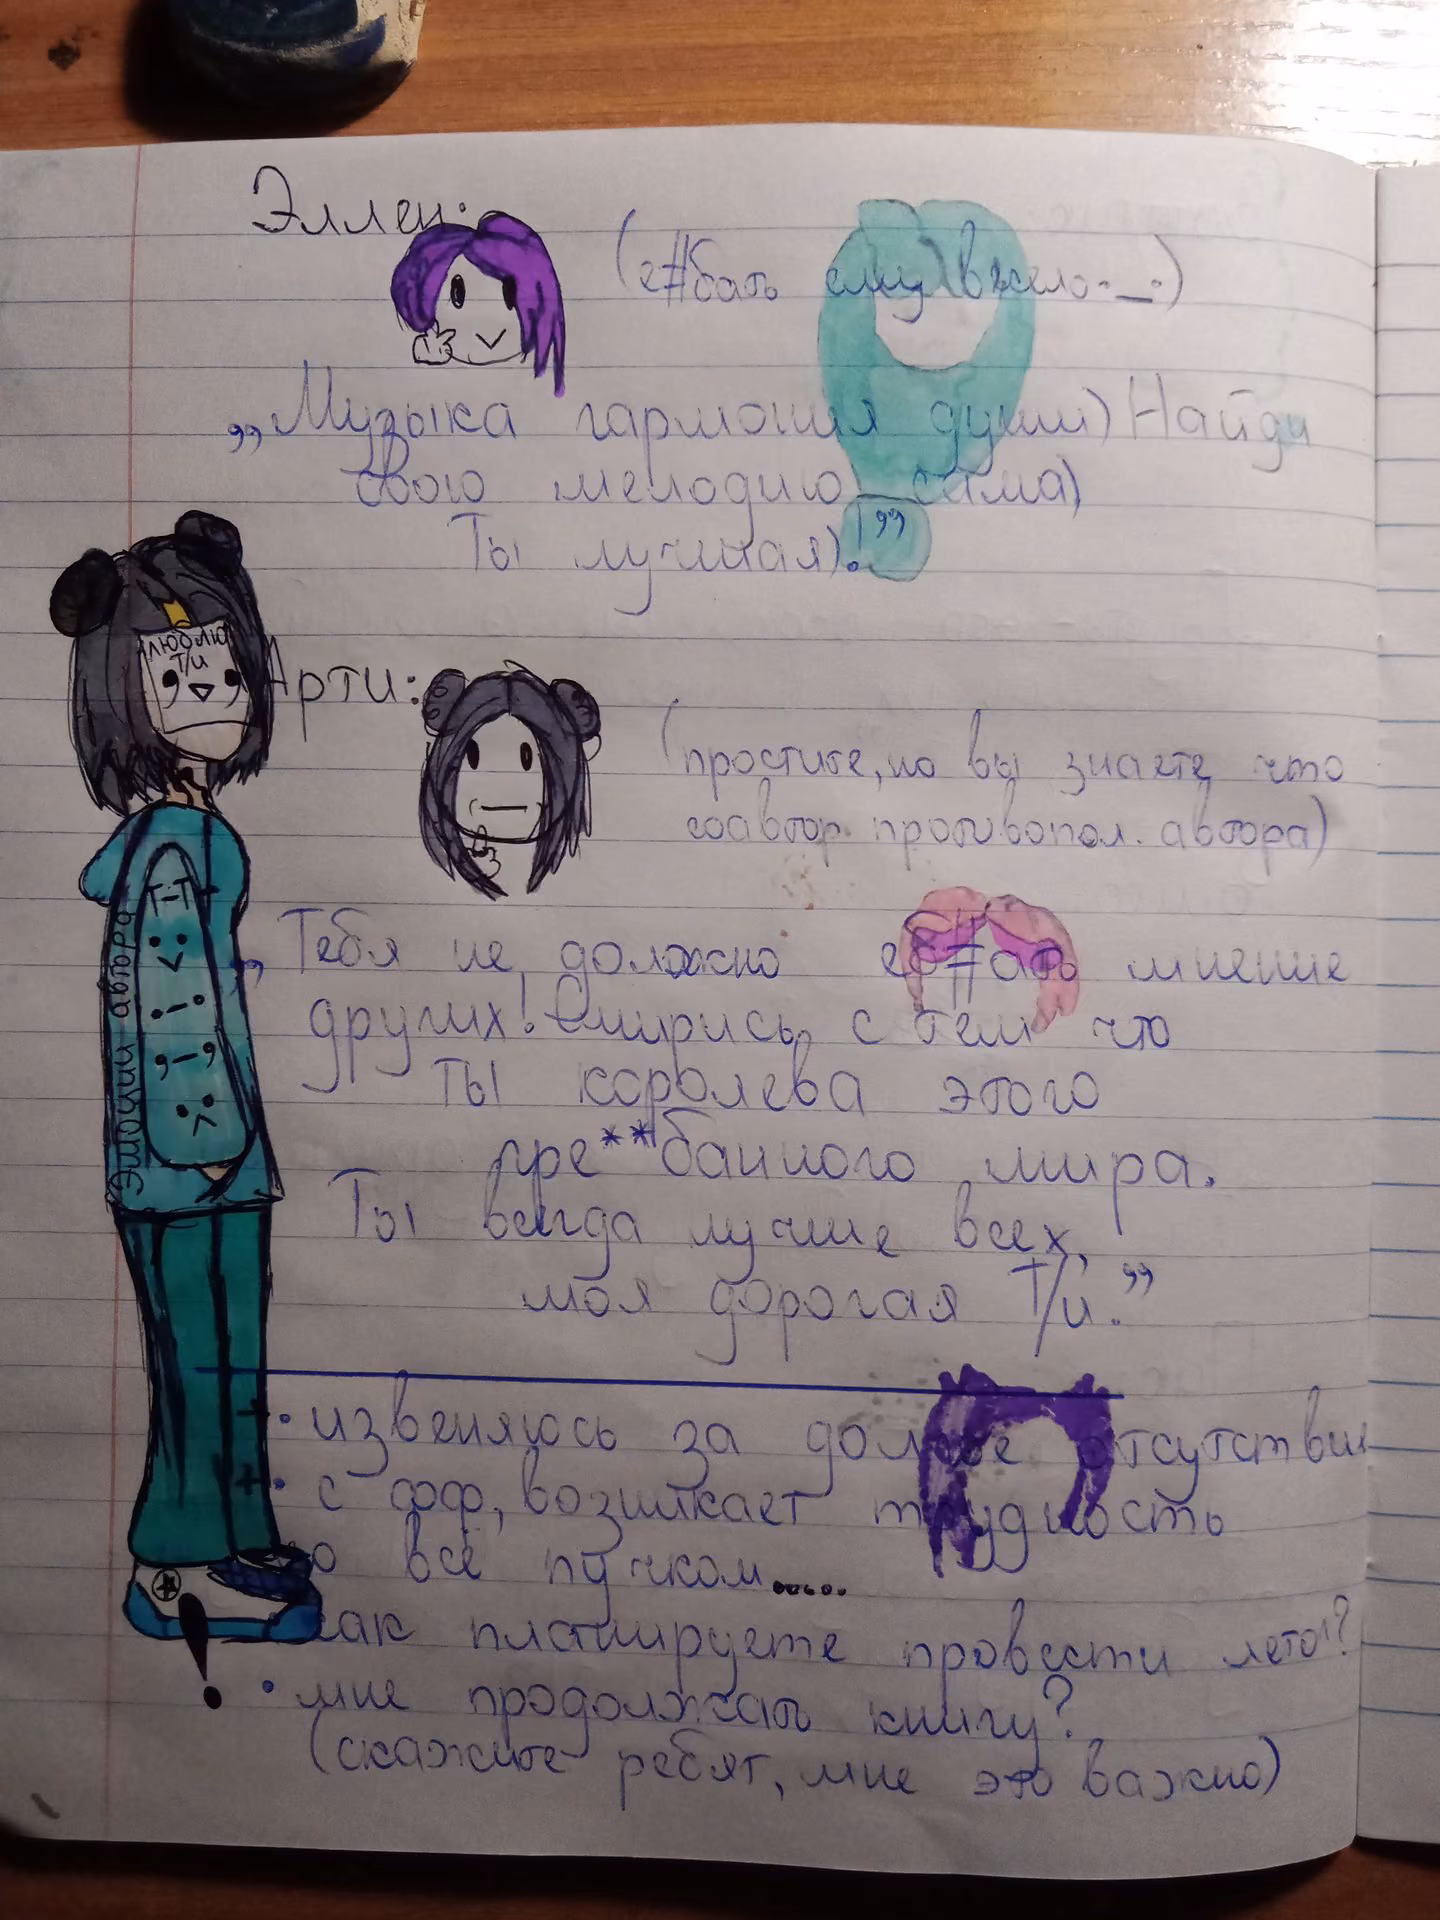 Эллен:
(е#бать ему весело ._.)
„Музыка гармония души) Найди
свою мелодию сама)
Ты лучшая).”
люблю
Т/и
Арти:
(простите, но вы знаете что
соавтор противопол. автора)
„Тебя не должно еб#ать мнение
других! Смирись с тем что
ты королева этого
пре**банного мира.
Ты всегда лучше всех,
моя дорогая Т/и.”
Эмоции автора
Т-Т
•-•
,-,
+• извеняюсь за долгое отсутствие
+• с фф, возникает трудность
но всё пучком......
как планируете провести лето?
! • мне продолжать книгу?
(скажите ребят, мне это важно)